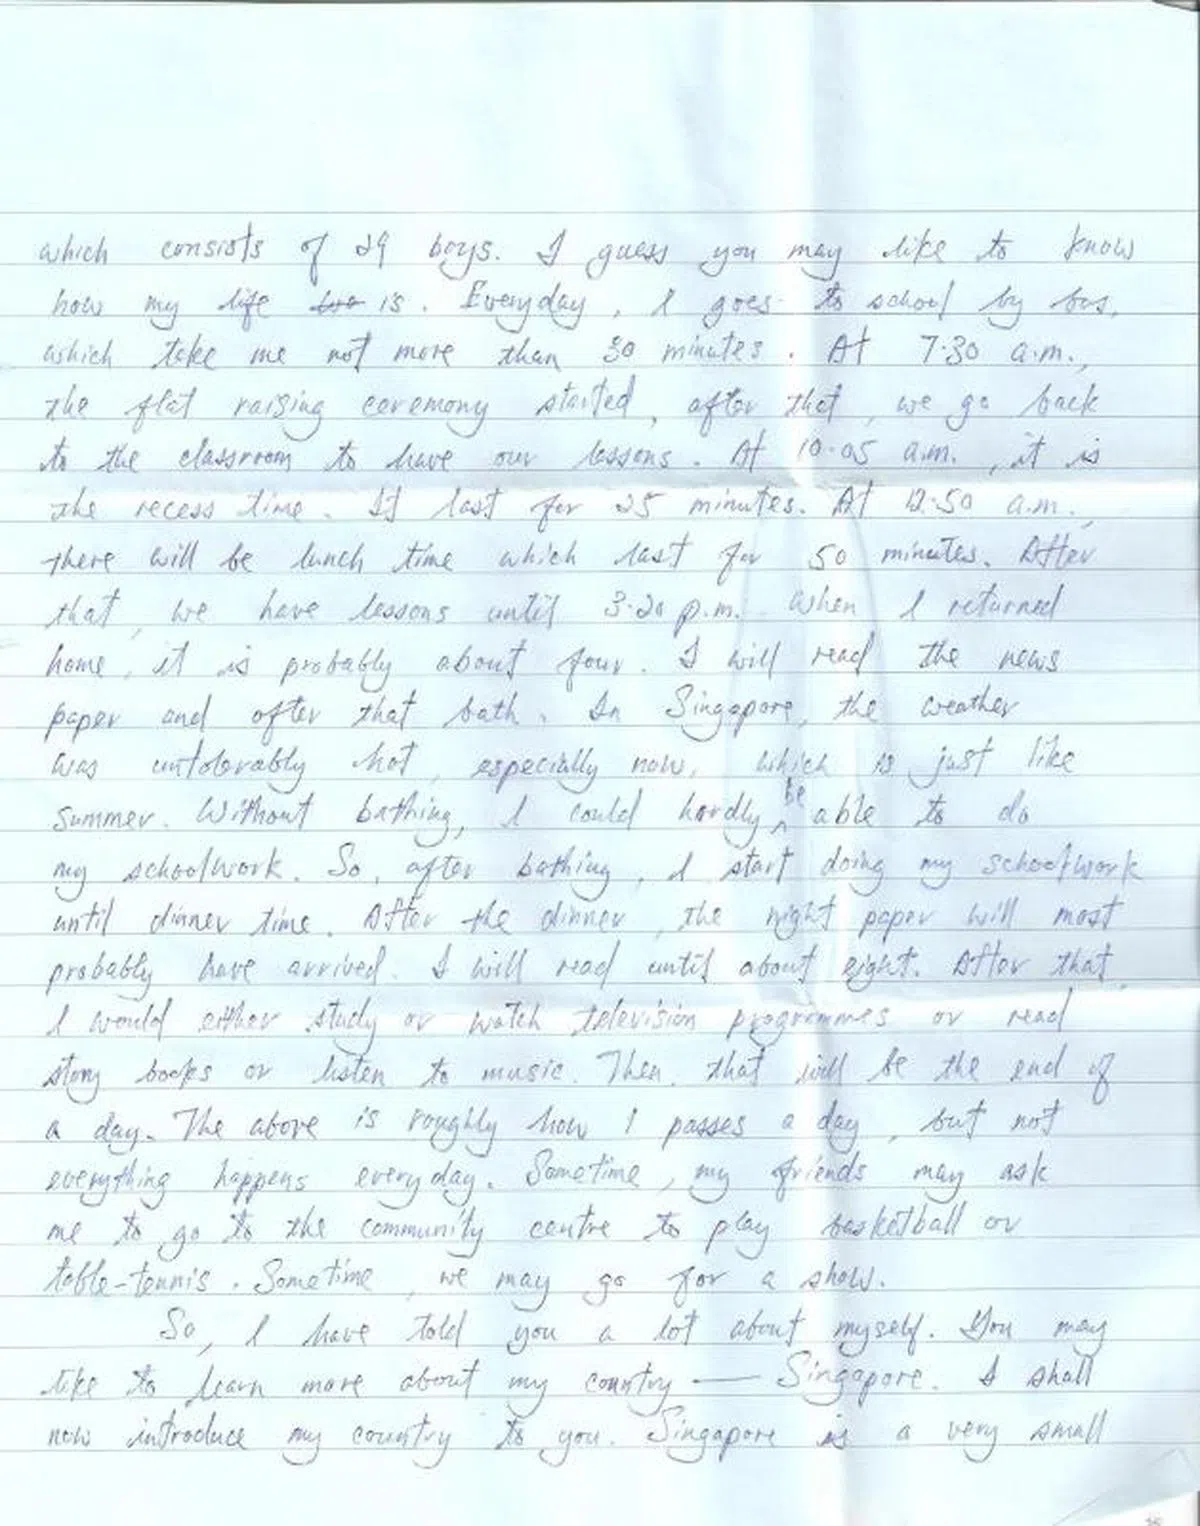 which consists of 29 boys. I guess you may like to know
how my life is. Everyday, I goes to school by bus,
which take me not more than 30 minutes. At 7.30 a.m.,
the flat raising ceremony started, after that, we go back
to the classroom to have our lessons. At 10.05 a.m., it is
the recess time. It last for 25 minutes. At 12.50 a.m.,
there will be lunch time which last for 50 minutes. After
that, we have lessons until 3.20 p.m. When I returned
home, it is probably about four. I will read the news
paper and after that bath. In Singapore, the weather
was untolerably hot, especially now, which is just like
summer. Without bathing, I could hardly be able to do
my schoolwork. So, after bathing, I start doing my schoolwork
until dinner time. After the dinner, the night paper will most
probably have arrived. I will read until about eight. After that,
I would either study or watch television programmes or read
story books or listen to music. Then, that will be the end of
a day. The above is roughly how I passes a day, but not
everything happens everyday. Sometime, my friends may ask
me to go to the community centre to play basketball or
table-tennis. Sometime, we may go for a show.
So, I have told you a lot about myself. You may
like to learn more about my country — Singapore. I shall
now introduce my country to you. Singapore is a very small